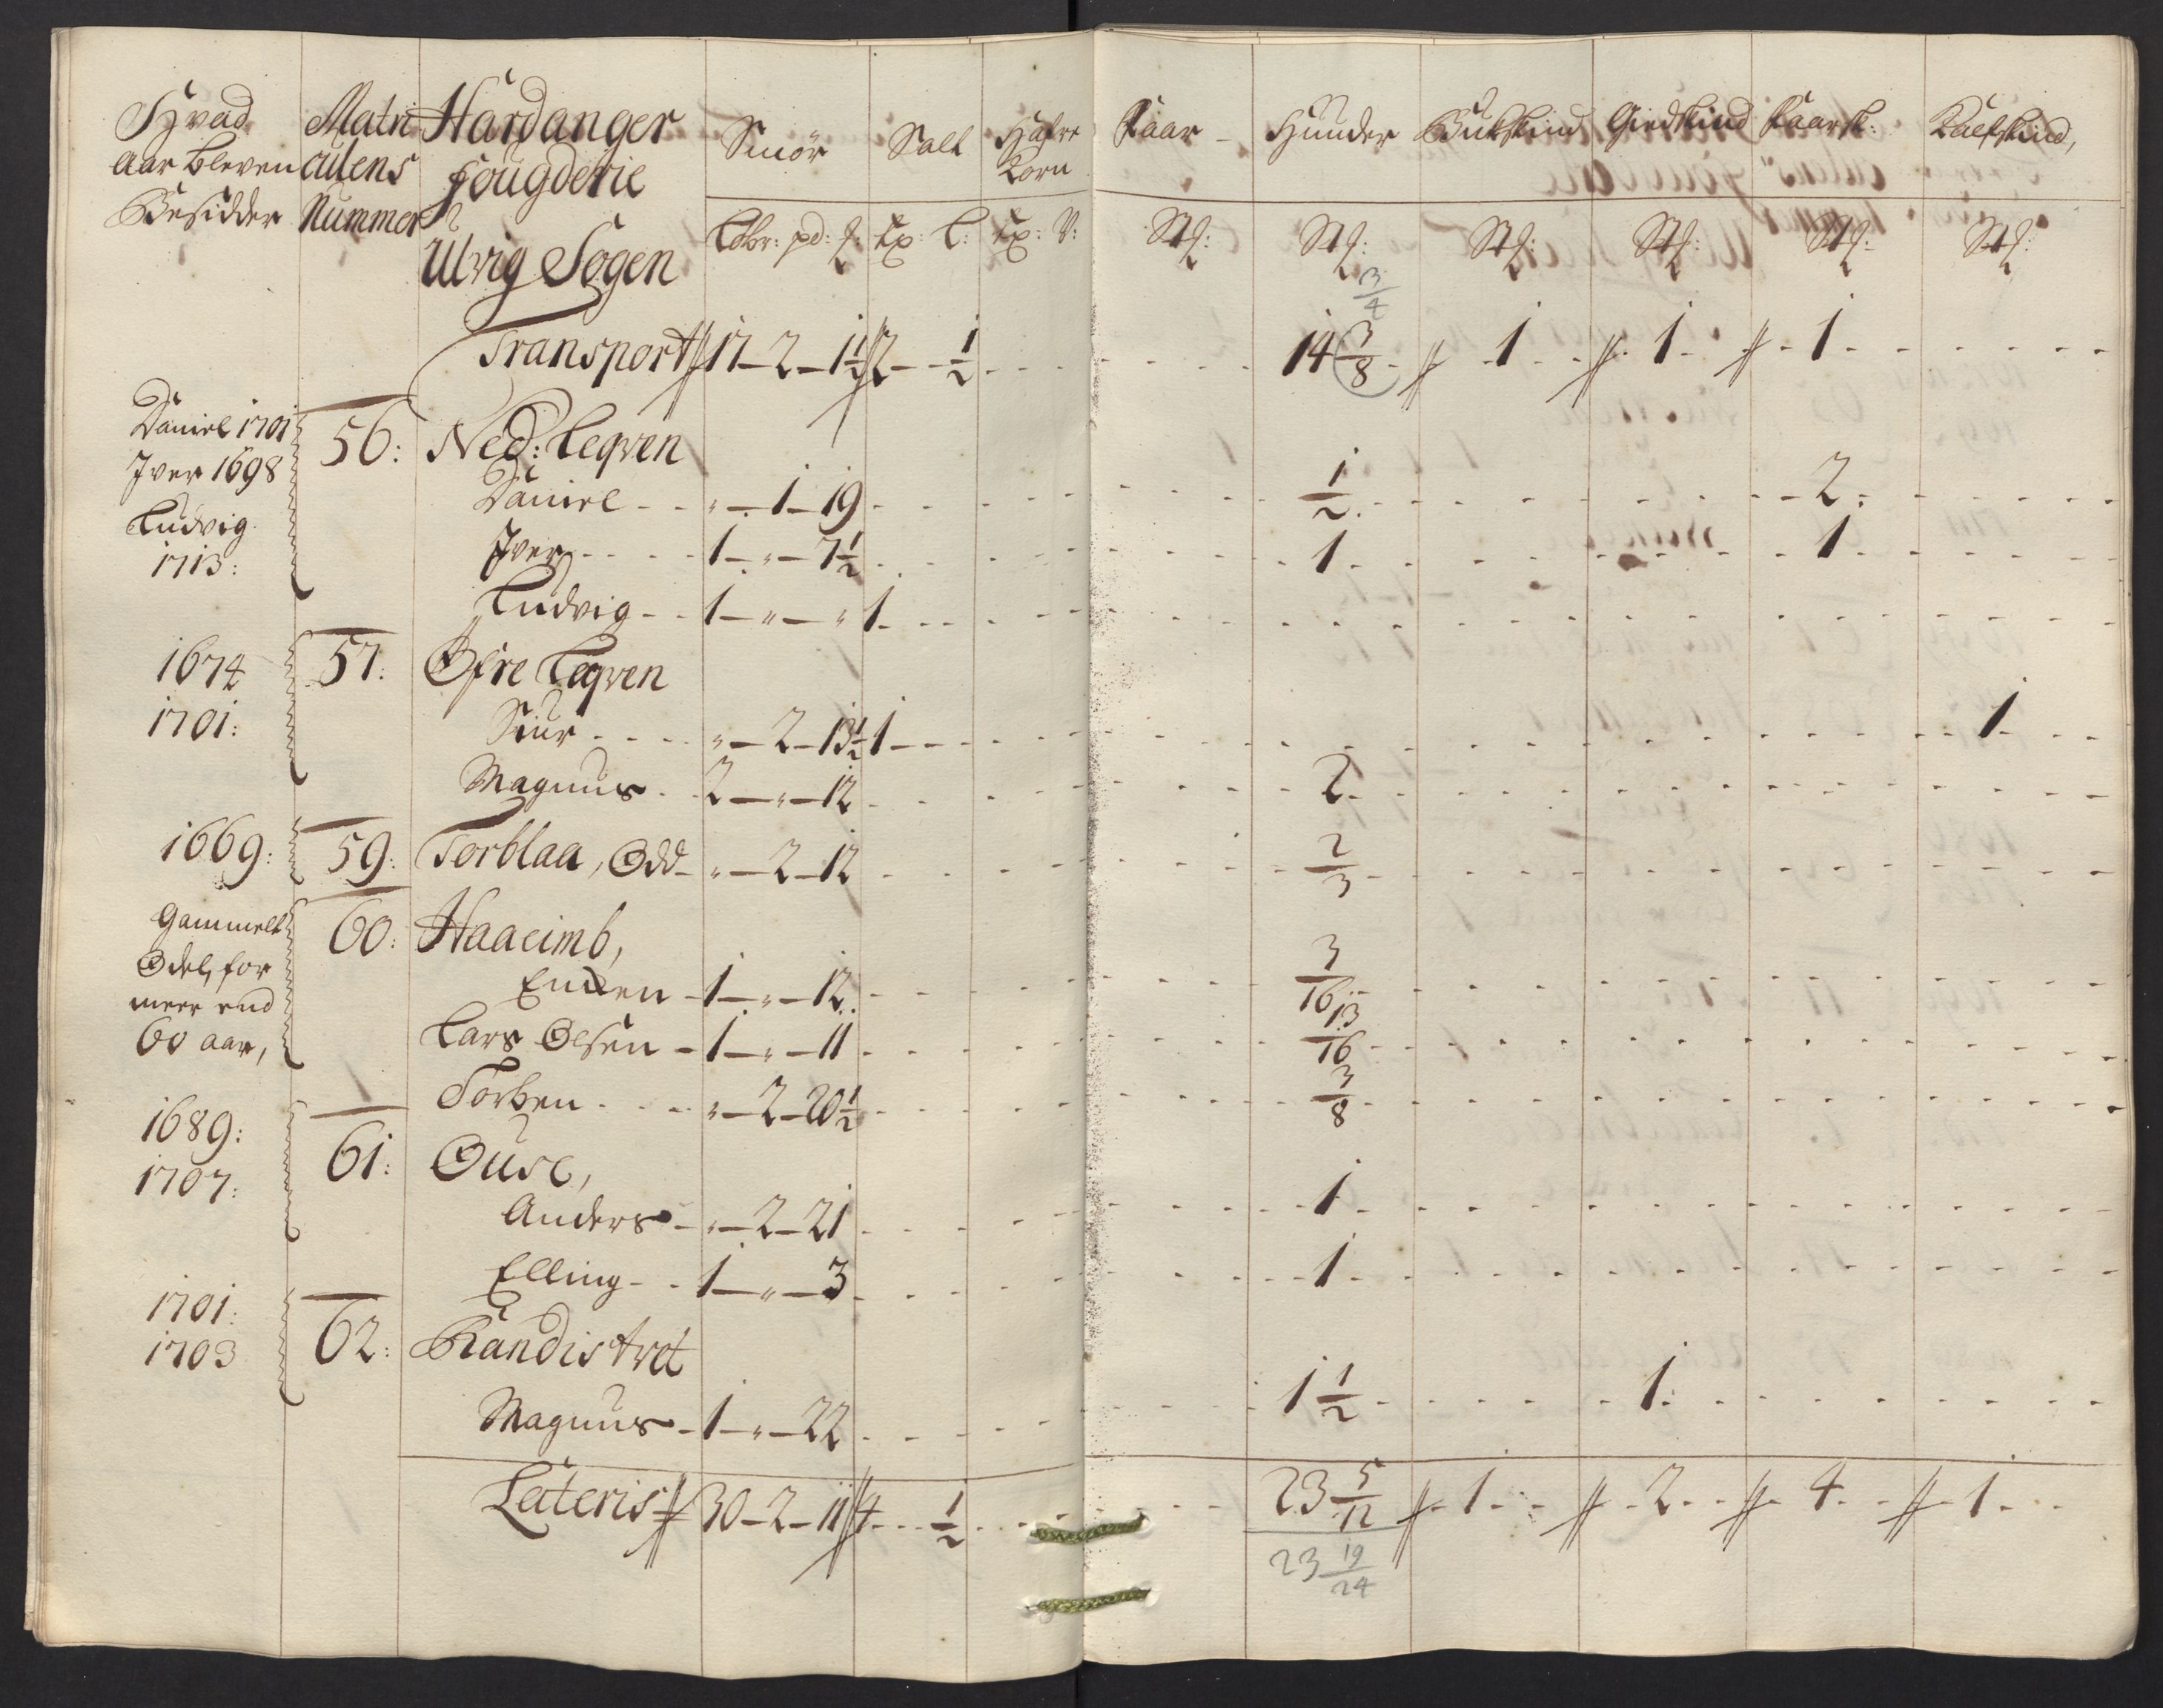 Hvad Matri Hardanger Smör Salt Hafre Faar Huuder Bukskind Giedskind Faarsk: Kalfskind,
aar bleven culens fougderie Korn
Besidder Nummer Ulvig Sogen Löbr: pd: Tp: L: Tp: V: Stk: Stk: Stk: Stk: Stk: Stk:
3/4
Transport 17 - 2 - 1 1/2 2 - 1/2 14 3/8 1 1 1
Daniel 1701 56: Ned: Leqven
Iver 1698 Daniel - 1 - 19 1/2 2
Ludvig Iver 1 - " - 7 1/2 1 1
1713: Ludvig 1 - " - " 1
1674 57: Øfre Leqven
1701: Siur " - 2 - 13 1/2 1 1
Magnus 2 - " - 12 2
1669: 59: Torblaa, Odd " - 2 - 12 2/3
Gammelt 60: Haaeimb,
Odel, for Enken 1 - " - 12 3/16
meer end Lars Olsen 1 - " - 11 13/16
60 aar, Torben " - 2 - 20 1/2 3/8
1689: 61: Ouse,
1707: Anders " - 2 - 21 1
Elling 1 - " - 3 1
1701: 62: Randistvet
1703 Magnus 1 - " - 22 1 1/2 1
Lateris 30 - 2 - 11 4 - 1/2 23 5/12 1 2 4 1
23 19/24